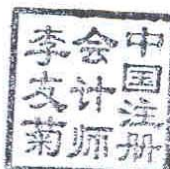 中国注册
会计师
李友菊